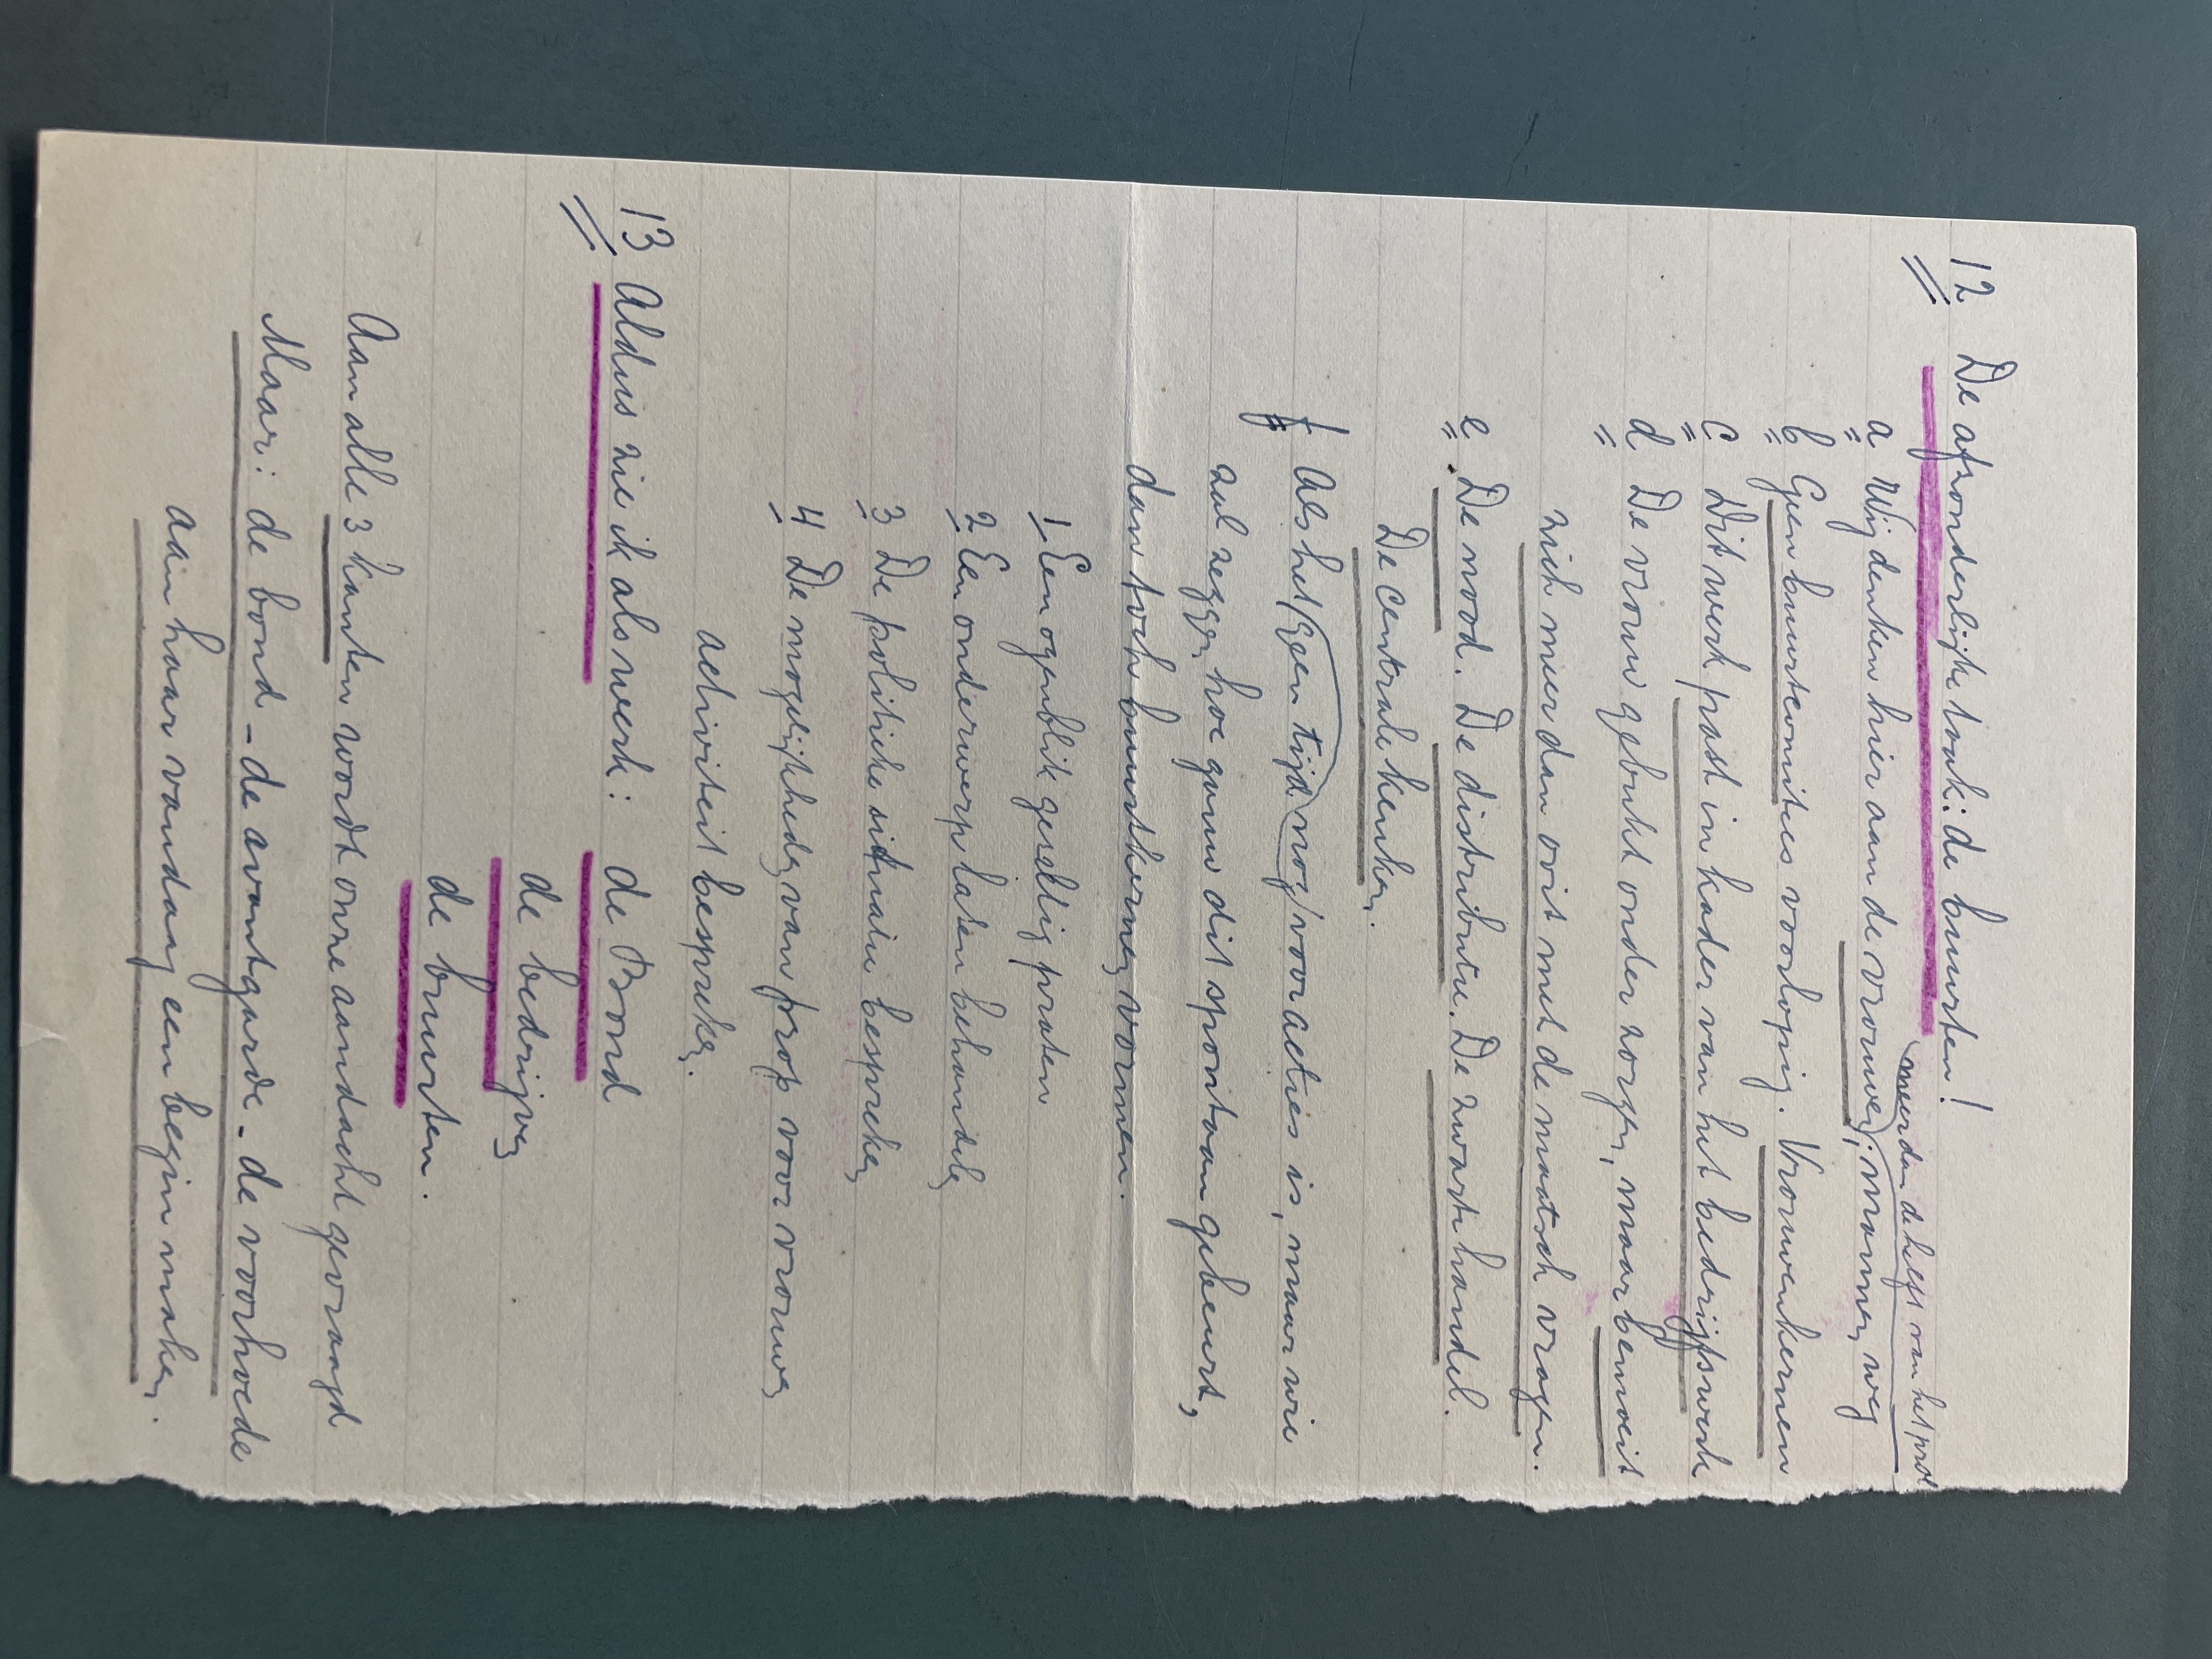 12 De afzonderlijke taak: de buurten!
meer dan de helft van het prol
a Wij denken hier aan de vrouwen; mannen weg
b Geen buurtcomités voorlopig. Vrouwenkernen
c Dit werk past in kader van het bedrijfswerk
d De vrouw gebukt onder zorgen, maar bemoeit
zich meer dan ooit met de maatsch vragen.
e. De nood. De distributie. De zwarte handel.
De centrale keuken.
f Als het/geen tijd nog/voor acties is, maar wie
zal zeggen hoe gauw dit spontaan gebeurt,
dan toch buurtkernen vormen.
1 Een ogenblik gezellig praten
2 Een onderwerp laten behandelen
3 De politieke situatie bespreken
4 De mogelijkheden van prop voor vrouwen
activiteit bespreken.
13 Aldus zie ik als werk: de Bond
de bedrijven
de buurten.
Aan alle 3 kanten wordt onze aandacht gevraagd
Maar: de bond - de avantgarde - de voorhoede
aan haar vandaag een begin maken.